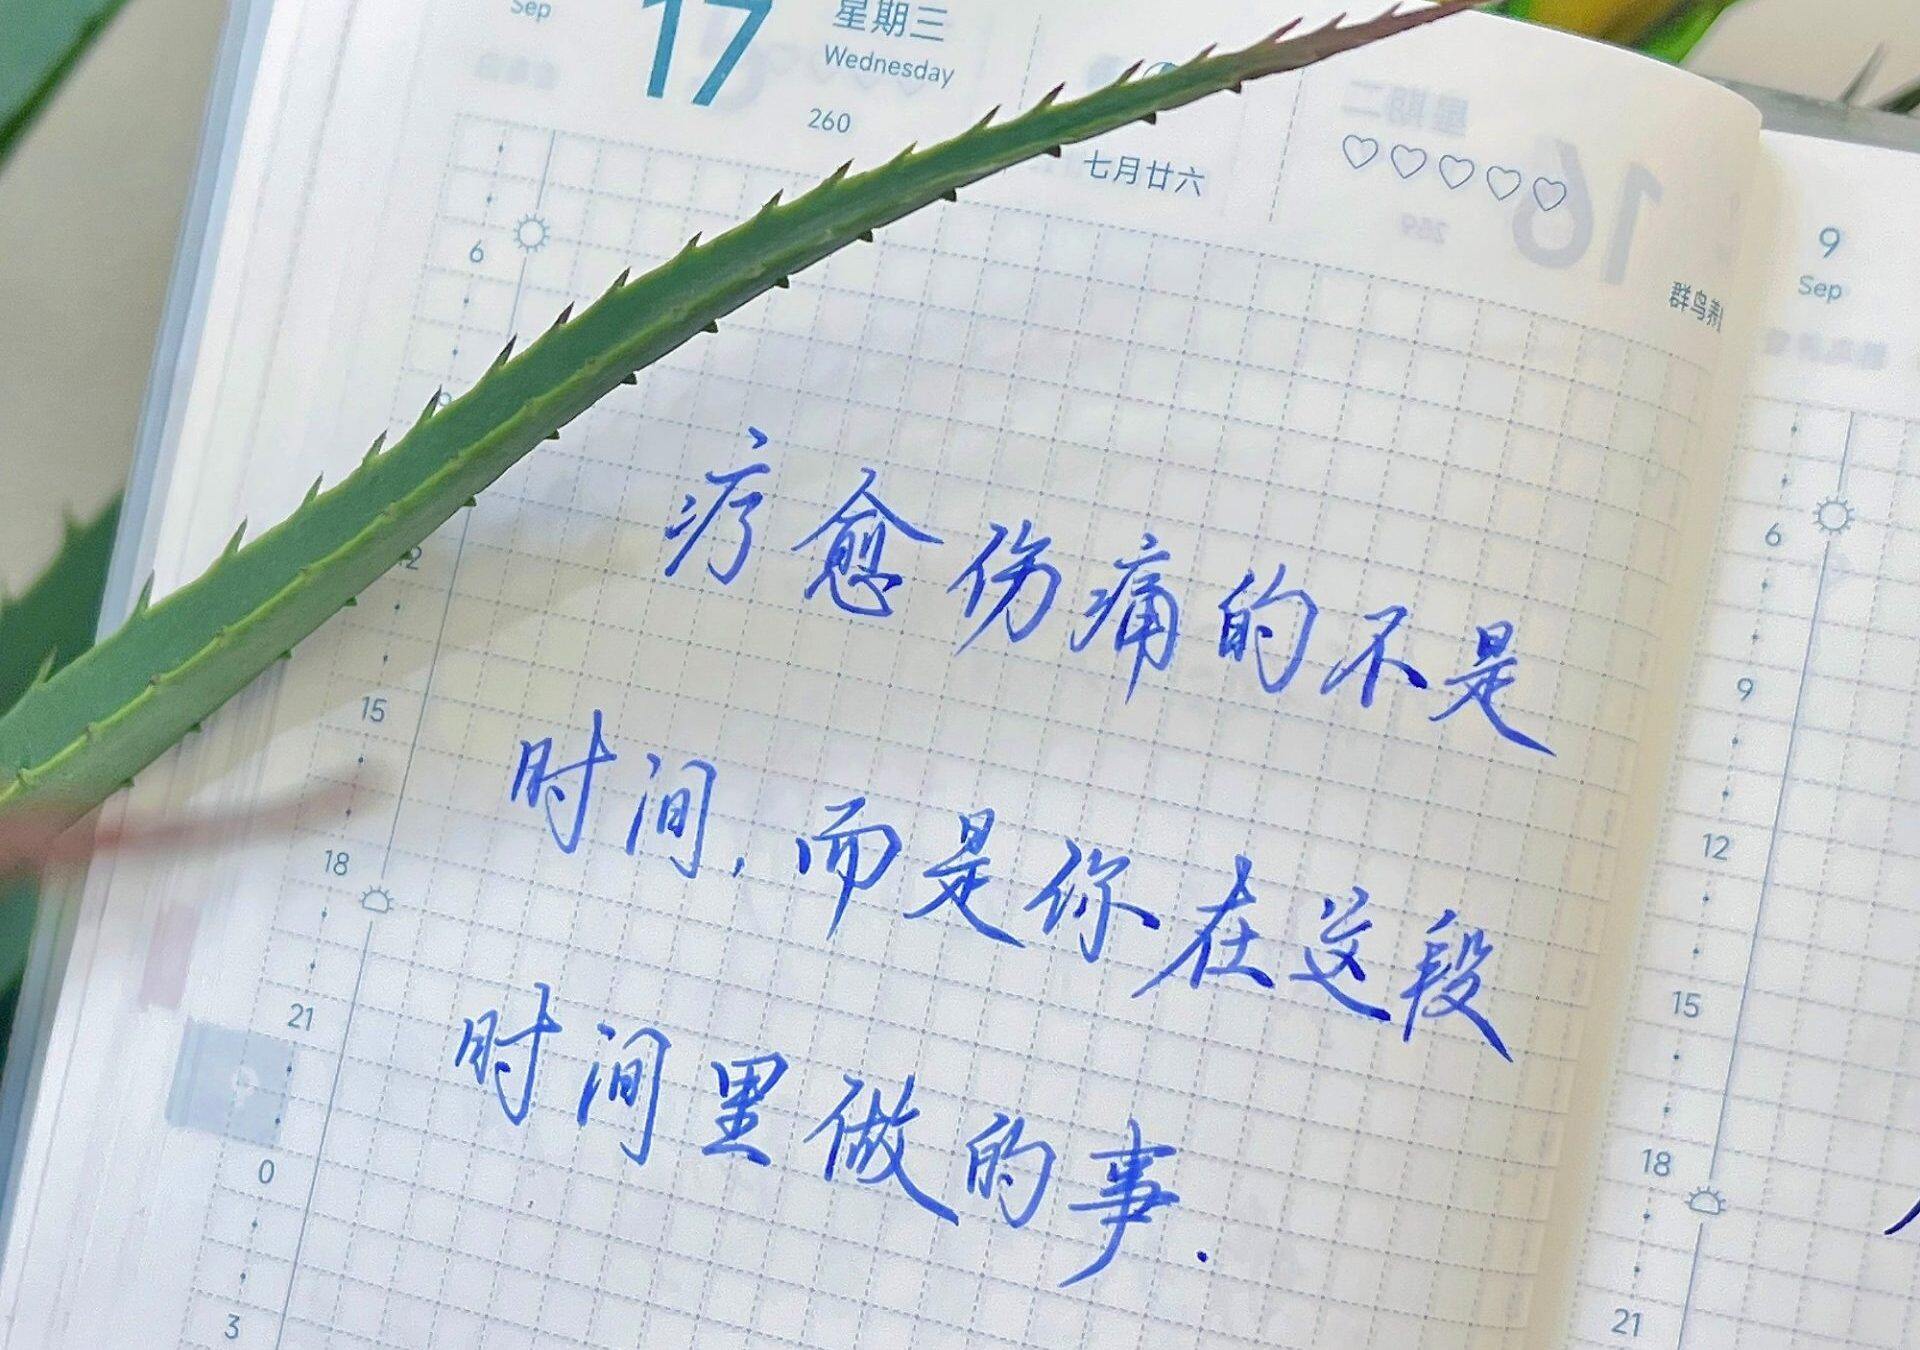 Sep
17
星期三
Wednesday
260
七月廿六
群鸟养
6
12
15
18
21
0
3
疗愈伤痛的不是
时间,而是你在这段
时间里做的事.
9
Sep
6
9
12
15
18
21